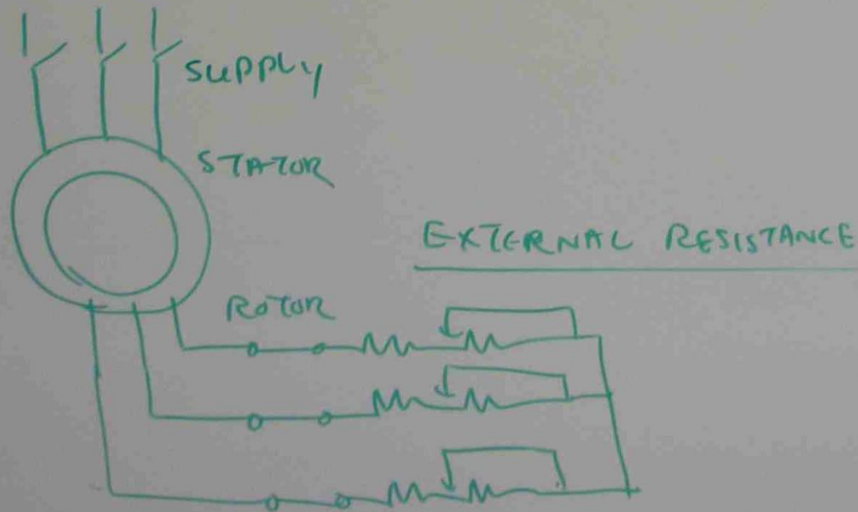 SUPPLY
STATOR
EXTERNAL RESISTANCE
ROTOR